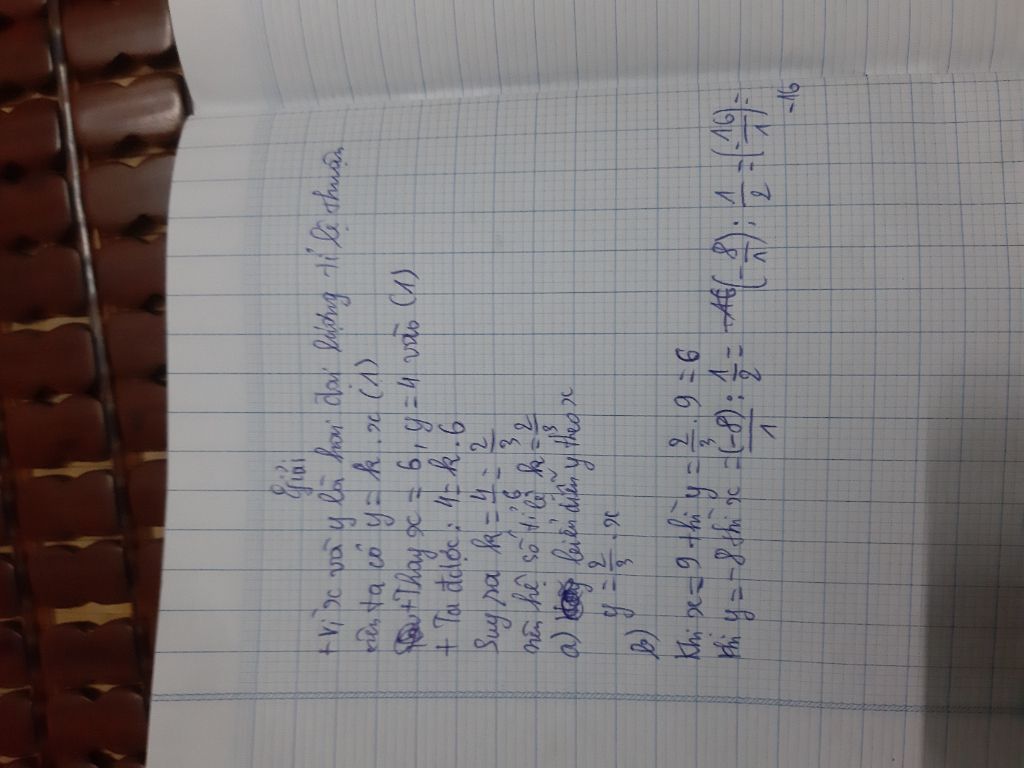 Giải
+ Vì x và y là hai đại lượng tỉ lệ thuận
nên ta có y = k . x (1)
+ Thay x = 6, y = 4 vào (1)
+ Ta được: 4 = k . 6
Suy ra k = 4/6 = 2/3
nên hệ số tỉ lệ k = 2/3
a) biểu diễn y theo x
y = 2/3 . x
b)
Khi x = 9 thì y = 2/3 . 9 = 6
Khi y = -8 thì x = (-8)/1 : 1/2 = (-8/1) : 1/2 = (-16/1) =
-16